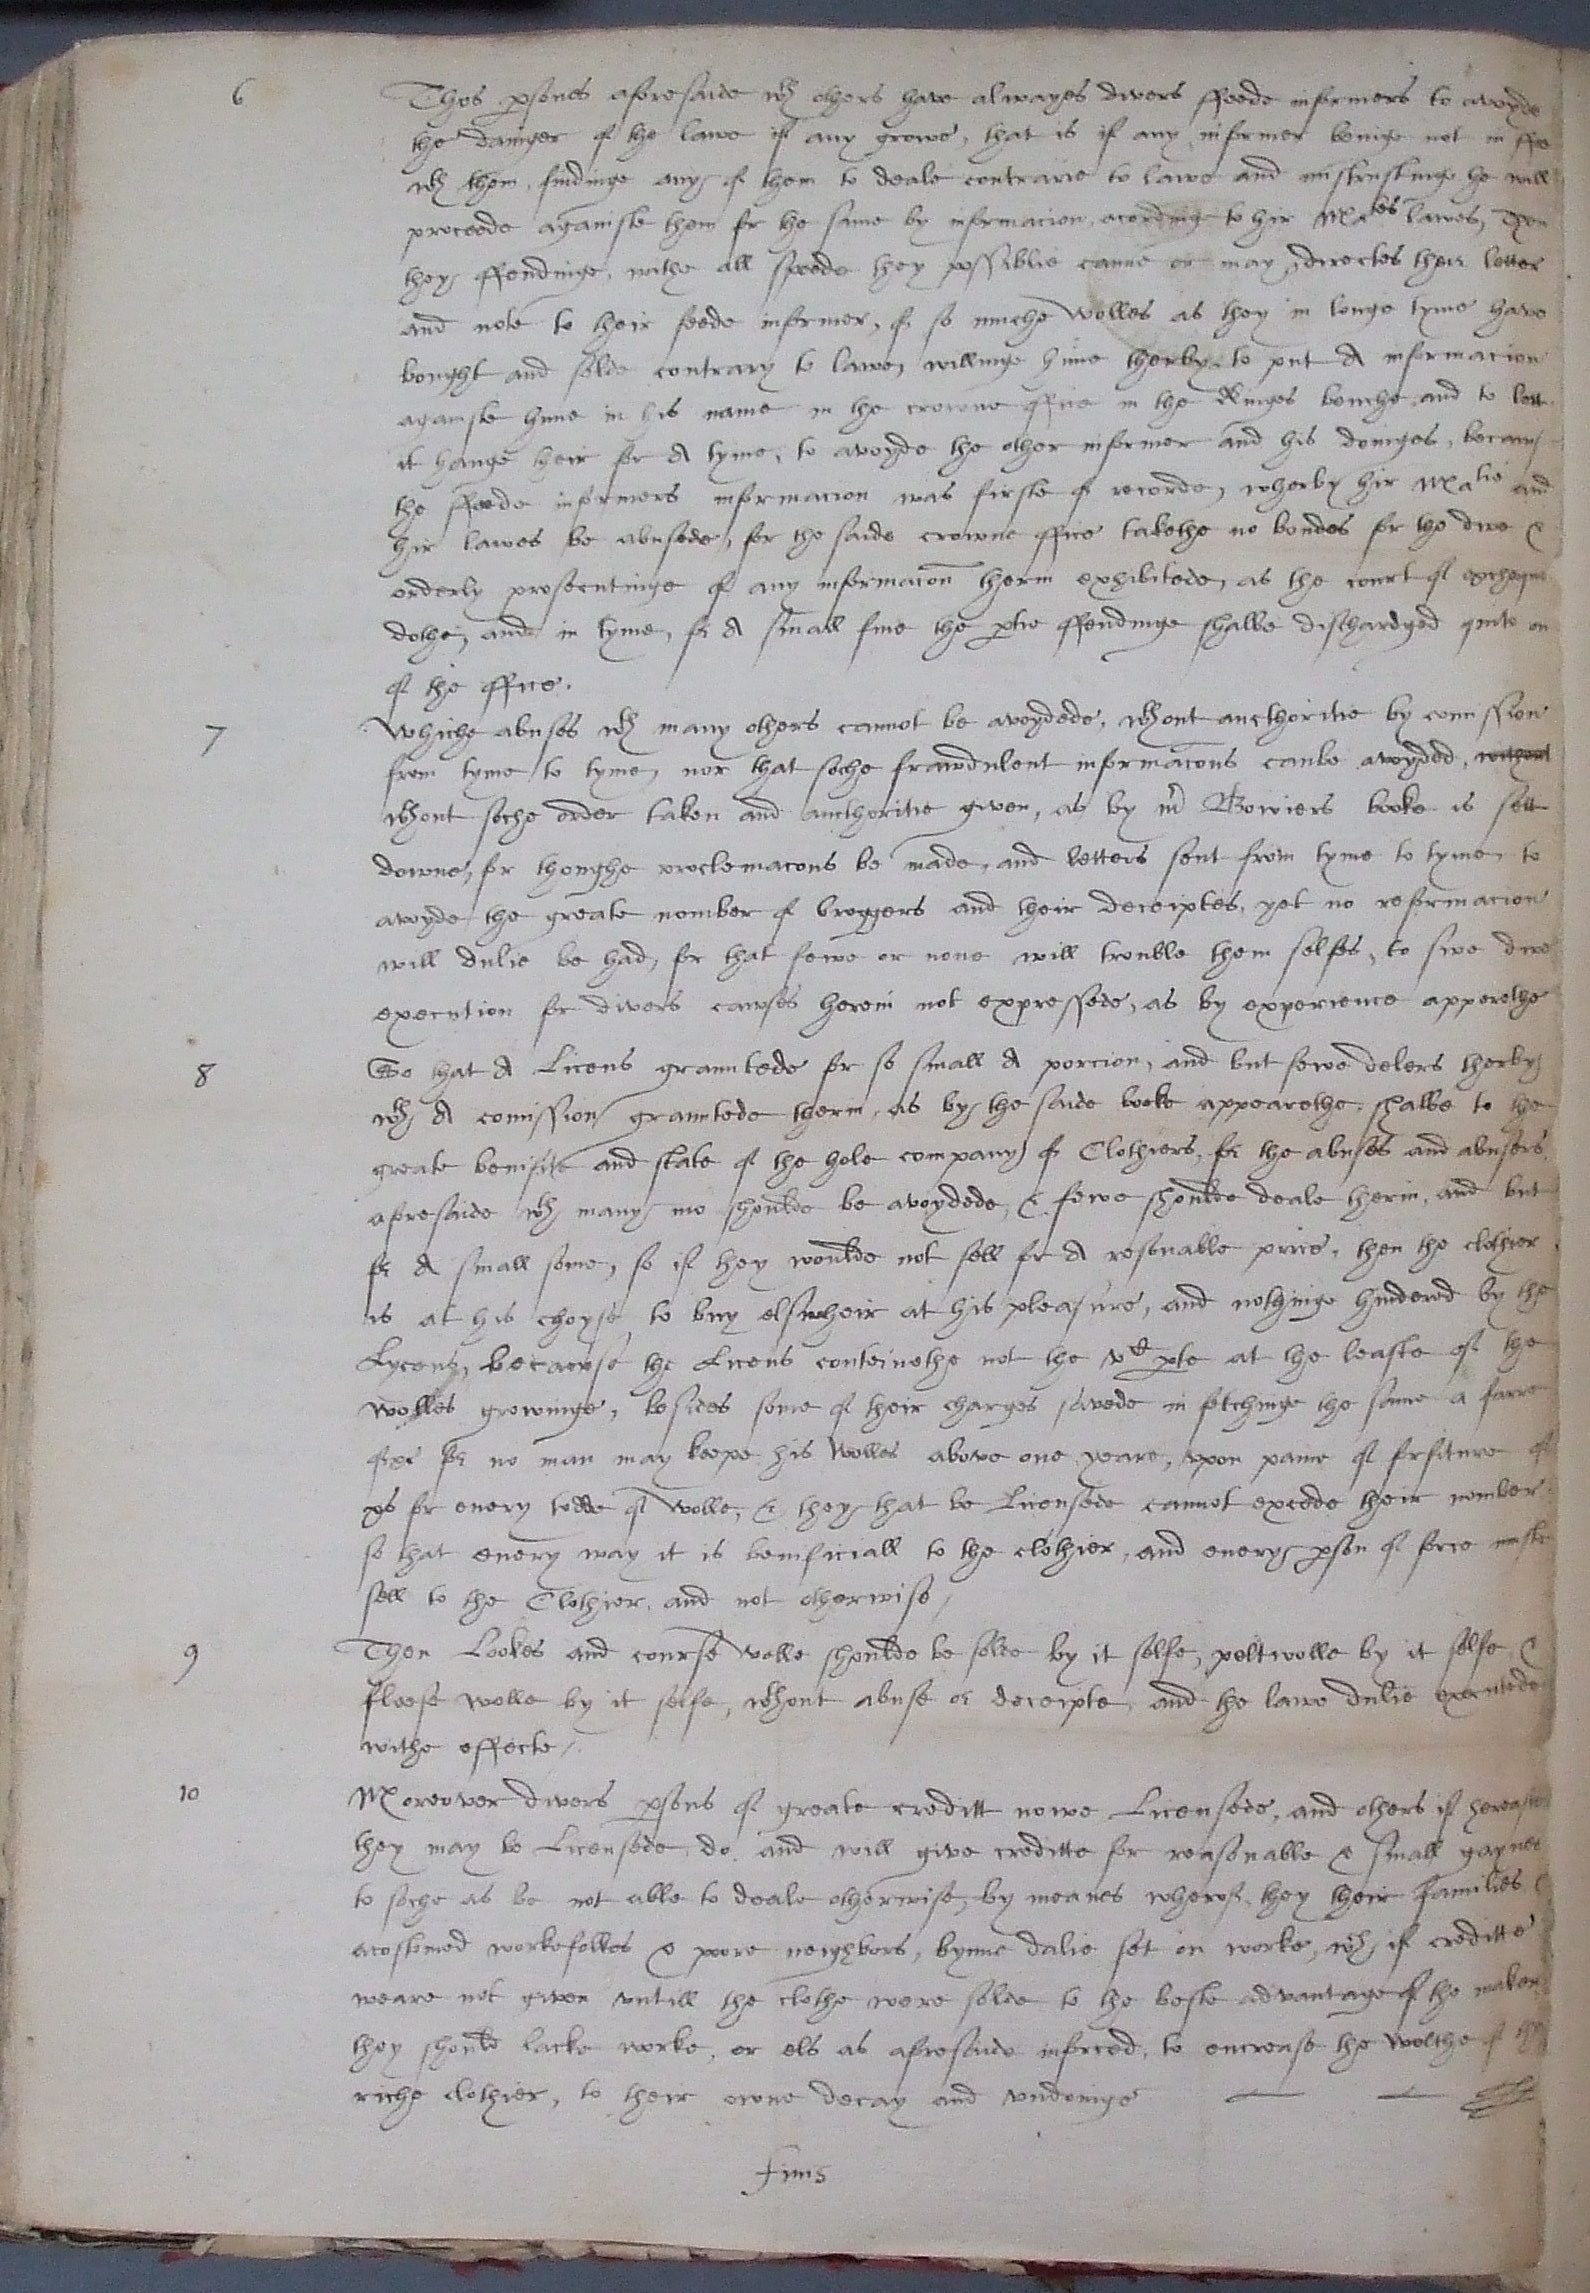 6 Thes psones aforesaide wth others have alwayes divers ffeede informers to avoyde
the dainger of the lawe if any growe, that is if any informer beinge not in ffee
wth them, findinge any of them to deale contrarie to lawe and mistrustinge he will
proceede againste them for the same by informacion, acordinge to hir Maties lawes, Then
they offendinge, withe all speede they possiblie canne or may, directes their letter
and note to their feede informer, of so muche wolles as they in longe tyme have
bought and solde contrary to lawe, willinge hime therby to put A informacion
againste hime in his name in the crowne office in the Kinges benche, and to lett
it hange heir for A tyme, to avoyde the other informer and his doinges, becaus
the ffeede informers informacion was firste of recorde, wherby hir Matie and
hir lawes be abusede, for the saide crowne office takethe no bondes for the due &
orderly prosecutinge of any informacon therin exhibitede, as the court of exchequer
dothe, and in tyme, for A small fine the ptie offendinge shalbe dischardged quite ou
of the office.
7 Whiche abuses wth many others cannot be avoydede, wthout aucthoritie by comission
from tyme to tyme, nor that soche frawdulent informacons canbe avoyded, without
wthout soche order taken and aucthoritie given, as by mr Bowiers booke is sett
downe, for thoughe proclemacons be made, and letters sent from tyme to tyme, to
avoyde the greate nomber of broggers and their deceiptes, yet no reformacion
will dulie be had, for that fewe or none will trouble them selfes, to sive due
execution for divers cawses herein not expressede, as by experience apperethe
8 So that A Licens grauntede for so small A porcion, and but fewe delers therby
wth A comission grauntede therin, as by the saide booke appearethe, shalbe to the
greate benifite and state of the hole company of Clothiers, for the abuses and abusers
aforesaide wth many mo shoulde be avoydede, & fewe shoulde deale therin, and but
for A small some, so if they woulde not sell for A resonable price, then the clothier
is at his choyse, to buy elswheir at his pleasure, and nothinge hindered by the
Lycens, because the Licens conteinethe not the vth pte at the leaste of the
wolles growinge, besides some of their charges savede in fetchinge the same a farre
of, for no man may keepe his wolles above one yeare, upon paine of forfiture of
xs for every todde of wolle, & they that be Licensede cannot excede their nomber
so that every way it is benificiall to the clothier, and every pson of force muste
sell to the Clothier, and not otherwise,
9 Then Lockes and course wolle shoulde be solde by it selfe, peltwolle by it selfe &
fleese wolle by it selfe, wthout abuse or deceipte, and the lawe dulie executede
withe effecte,
10 Moreover divers psons of greate creditt nowe Licensede, and others if hereafter
they may be Licensede, do and will give creditte for reasonable & small gaynes
to soche as be not able to deale otherwise, by meanes wherof, they their families &
acostomed workefolkes & pore neighbors, bynne dalie set on worke, wch if creditte
weare not given untill the clothe were solde to the beste advantage of the maker
they should lacke worke, or els as aforesaide inforced, to encrease the welthe of the
riche clothier, to their owne decay and undoinge
Finis